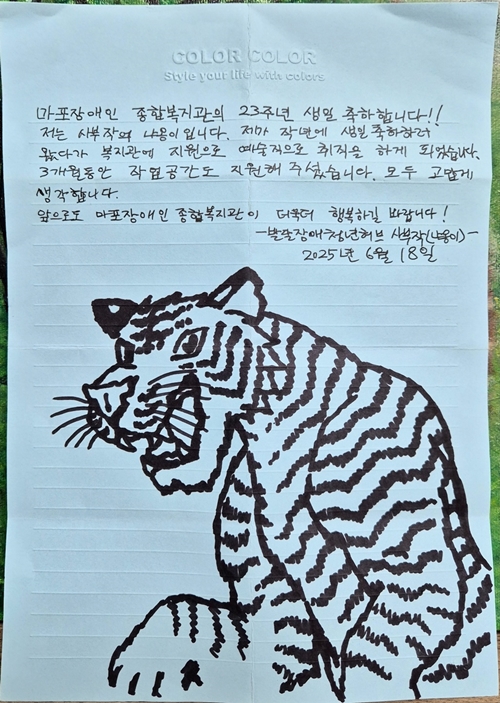 COLOR COLOR
Style your life with colors
마포장애인 종합복지관의 23주년 생일 축하합니다!!
저는 시부작의 나웅이입니다. 제가 작년에 생일축하하러
왔다가 복지관에 지원으로 예술적으로 취직을 하게 되었습니다.
3개월동안 작업공간도 지원해 주셨습니다. 모두 고맙게
생각합니다.
앞으로도 마포장애인 종합복지관이 더욱더 행복하길 바랍니다!
-발달장애청년허브 사부작(나웅이)-
2025년 6월 18일